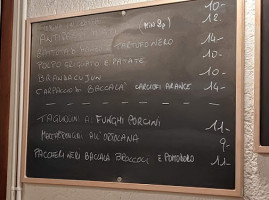 10-
ANTIPASTO (MIN 2p) 12-
TARTUFO NERO 14-
POLPO GRIGLIATO E PATATE 10-
BRANDACUJUN 10-
CARPACCIO DI BACCALA' CARCIOFI ARANCE 14-
TAGLIOLINI AI FUNGHI PORCINI 11-
ALL'ORTOLANA 9-
PACCHERI NERI BACCALÀ BROCCOLI E POMODORO 11-